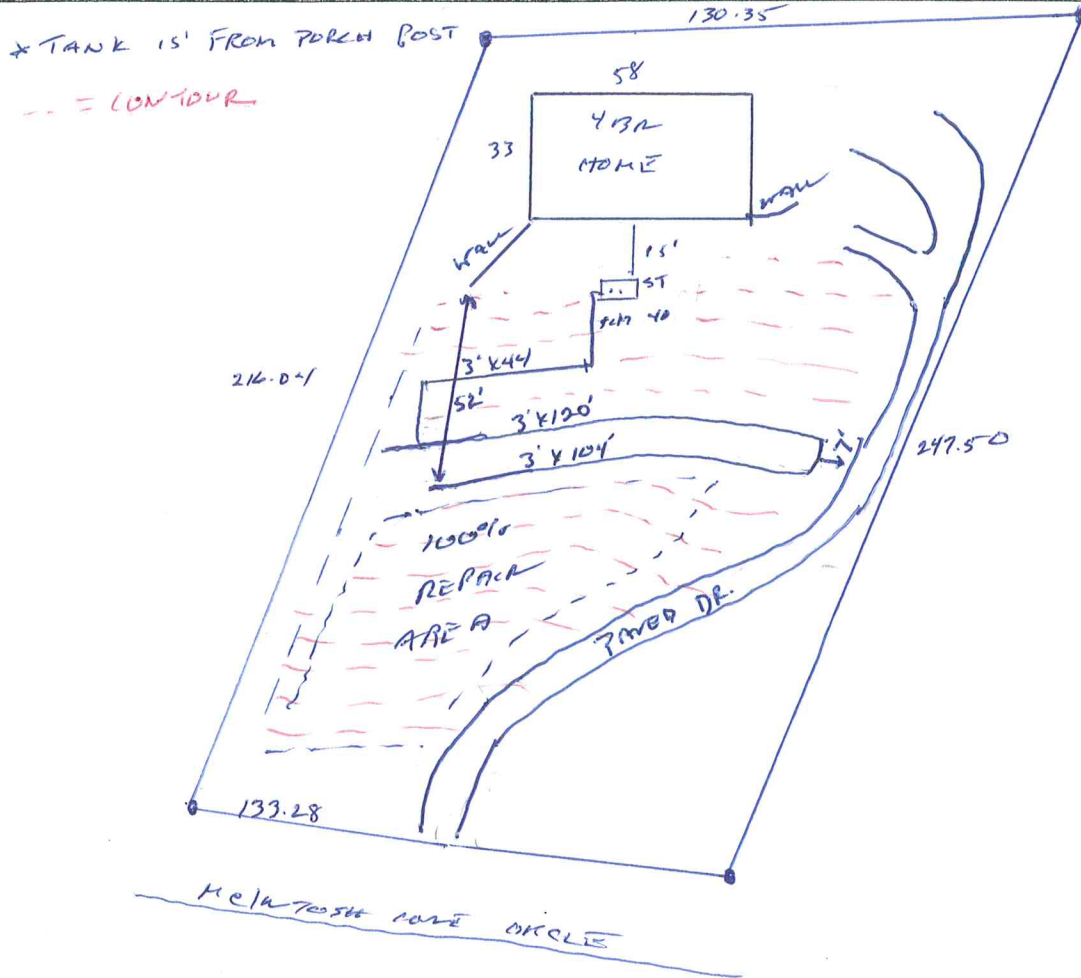 130.35
* TANK 15' FROM PORCH POST
-- = CONTOUR
58
4 BR
HOME
33
WALL
WALL
15'
ST
SCH 40
3' X 44'
216.04
52'
3' X 120'
3' X 104'
7'
247.50
100%
REPAIR
AREA
PAVED DR.
133.28
McINTOSH COVE CIRCLE